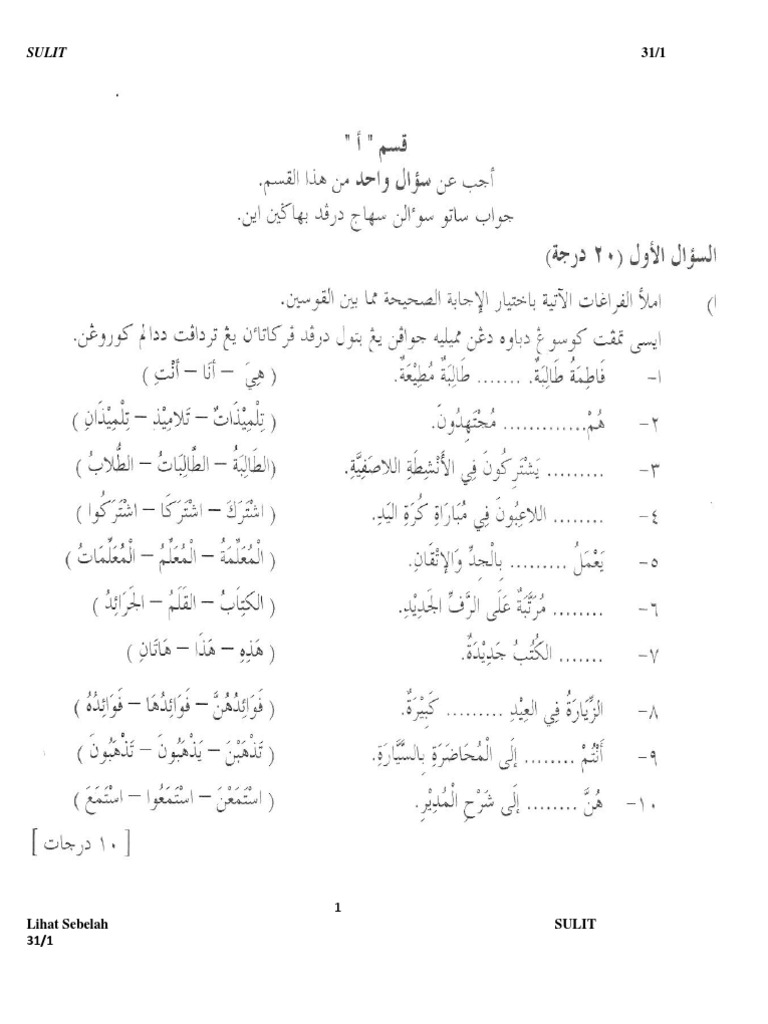 SULIT 31/1
قسم " أ "
أجب عن سؤال واحد من هذا القسم.
جواب ساتو سوءالن سهاج درڤد بهاݢين اين.
السؤال الأول (٢٠ درجة)
ا) املأ الفراغات الآتية باختيار الإجابة الصحيحة مما بين القوسين.
ايسي تمڤت كوسوڠ دباوه دڠن ميليه جواڤن يڠ بتول درڤد ڤركاتاءن يڠ تردڤت ددالم كوروڠن.
١- فَاطِمَةُ طَالِبَةٌ. ....... طَالِبَةٌ مُطِيْعَةٌ. ( هِيَ – أَنَا – أَنْتِ )
٢- هُمْ............. مُجْتَهِدُونَ. ( تِلْمِيْذَاتٌ – تَلَامِيْذِ – تِلْمِيْذَانِ )
٣- ......... يَشْتَرِكُونَ فِي الأَنْشِطَةِ اللاصَفِيَّةِ. (الطَالِبَةُ – الطَّالِبَاتُ – الطُّلابُ )
٤- ........ اللاعِبُونَ فِي مُبَارَاةِ كُرَةِ اليَدِ. ( اشْتَرَكَ – اشْتَرَكَا – اشْتَرَكُوا )
٥- يَعْمَلُ ......... بِالْجِدِّ وَالإِتْقَانِ. ( الْمُعَلِّمَةُ – الْمُعَلِّمُ – الْمُعَلِّمَاتُ )
٦- ........ مُرَتَّبَةٌ عَلَى الرَّفِّ الْجَدِيْدِ. ( الكِتَابُ – القَلَمُ – الجَرَائِدُ )
٧- ....... الكُتُبُ جَدِيْدَةٌ. ( هَذِهِ – هَذَا – هَاتَانِ )
٨- الزِّيَارَةُ فِي العِيْدِ ......... كَبِيْرَةٌ. ( فَوَائِدُهُنَّ – فَوَائِدُهَا – فَوَائِدُهُ )
٩- أَنْتُمْ ........ إِلَى الْمُحَاضَرَةِ بِالسَّيَّارَةِ. ( تَذْهَبْنَ – يَذْهَبُونَ – تَذْهَبُونَ )
١٠- هُنَّ ........ إِلَى شَرْحِ الْمُدِيْرِ. ( اسْتَمَعْنَ – اسْتَمَعُوا – اسْتَمَعَ )
[ ١٠ درجات ]
1
Lihat Sebelah SULIT
31/1